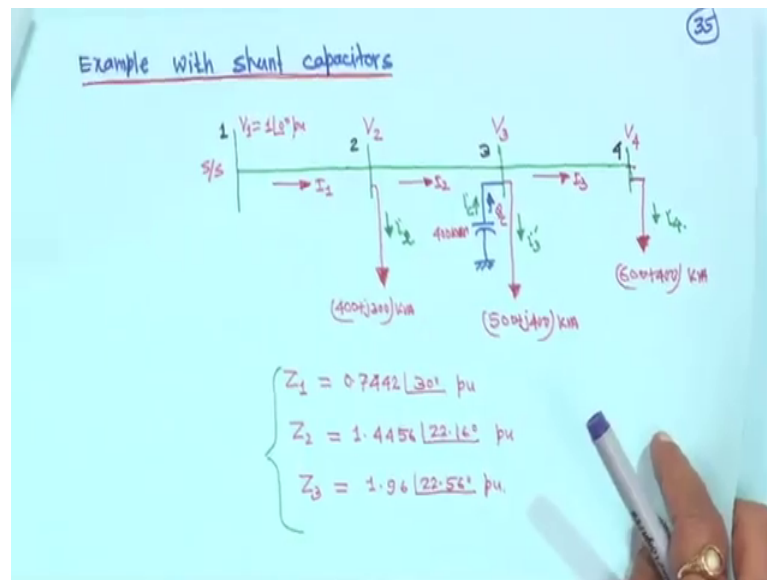 35
Example with shunt capacitors
1 V1=1∠0° pu V2 V3 V4
2 3 4
S/S
→ I1 → I2 → I3
i2 ic Qc i3' i4
400kVAr
(600+j400) KVA
(400+j200) KVA (500+j400) KVA
Z1 = 0.7442∠30° pu
Z2 = 1.4456∠22.16° pu
Z3 = 1.96∠22.56° pu.